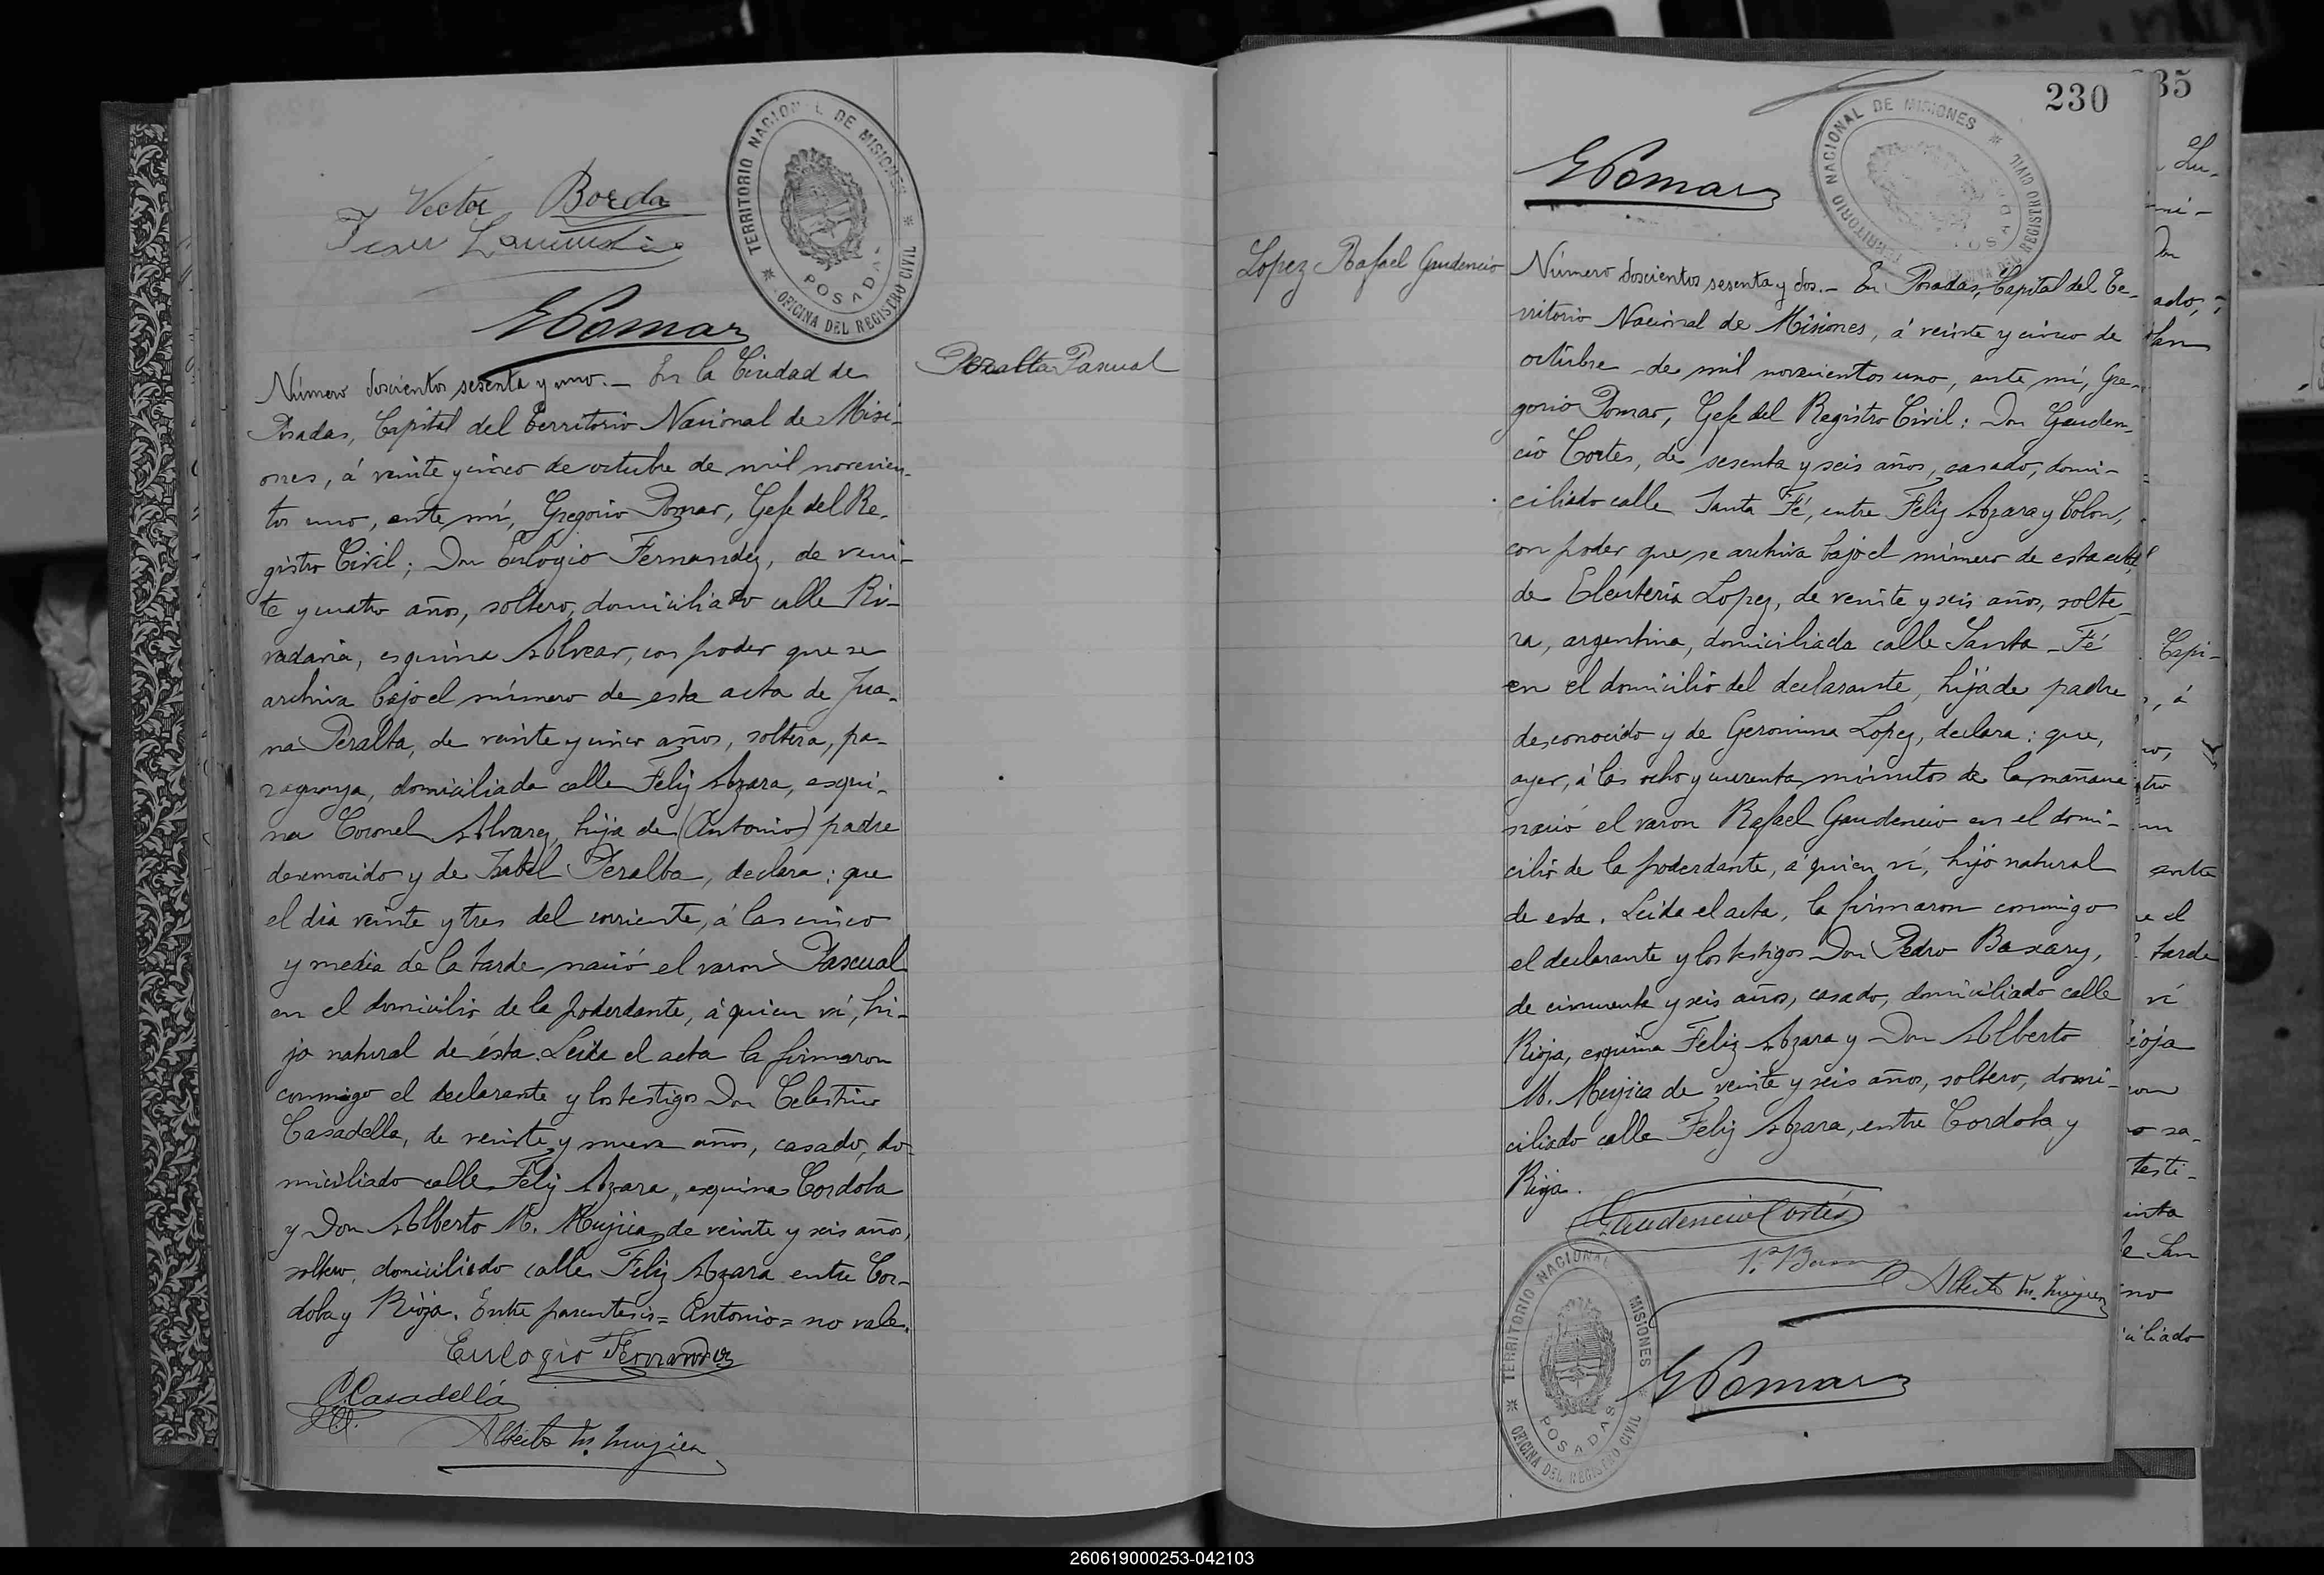 Victor Borda
TERRITORIO NACIONAL DE MISIONES
OFICINA DEL REGISTRO CIVIL
POSADAS
GPomar
Peralta Pascual
Número doscientos sesenta y uno. — En la Ciudad de
Posadas, Capital del Territorio Nacional de Misi-
ones, á veinte y cinco de octubre de mil novecien-
tos uno, ante mí, Gregorio Pomar, Gefe del Re-
gistro Civil; Don Eulogio Fernandez, de vein-
te y cuatro años, soltero, domiciliado calle Ri-
vadavia, esquina Alvear, con poder que se
archiva bajo el número de esta acta de Jua-
na Peralta, de veinte y cinco años, soltera, pa-
raguaya, domiciliada calle Feliz Azara, esqui-
na Coronel Alvarez, hija de (Antonio) padre
desconocido y de Isabel Peralta, declara: que
el dia veinte y tres del corriente, á las cinco
y media de la tarde nació el varon Pascual
en el domicilio de la poderdante, á quien ví, hi-
jo natural de ésta. Leida el acta la firmaron
conmigo el declarante y los testigos Don Celestino
Casadella, de veinte y nueve años, casado, do-
miciliado calle Feliz Azara, esquina Cordoba
y Don Alberto M. Mujica, de veinte y seis años,
soltero, domiciliado calle Feliz Azara entre Cor-
doba y Rioja. Entre parentesis = Antonio = no vale.
Eulogio Fernandez
C. Casadellá
Alberto M. Mujica
230
35
GPomar
TERRITORIO NACIONAL DE MISIONES
OFICINA DEL REGISTRO CIVIL
POSADAS
Lopez Rafael Gaudencio
Número doscientos sesenta y dos. — En Posadas, Capital del Te-
rritorio Nacional de Misiones, á veinte y cinco de
octubre de mil novecientos uno, ante mí, Gre-
gorio Pomar, Gefe del Registro Civil: Don Gauden-
cio Cortes, de sesenta y seis años, casado, domi-
ciliado calle Santa Fé, entre Feliz Azara y Colon,
con poder que se archiva bajo el número de esta acta,
de Eleuteria Lopez, de veinte y seis años, solte-
ra, argentina, domiciliada calle Santa Fé
en el domicilio del declarante, hija de padre
desconocido y de Geronima Lopez, declara: que,
ayer, á las ocho y cuarenta minutos de la mañana
nació el varon Rafael Gaudencio en el domi-
cilio de la poderdante, á quien ví, hijo natural
de esta. Leida el acta, la firmaron conmigo
el declarante y los testigos Don Pedro Baxary,
de cincuenta y seis años, casado, domiciliado calle
Rioja, esquina Feliz Azara y Don Alberto
M. Mujica de veinte y seis años, soltero, domi-
ciliado calle Feliz Azara, entre Cordoba y
Rioja.
Gaudencio Cortés
Alberto M. Mujica
GPomar
TERRITORIO NACIONAL DE MISIONES
OFICINA DEL REGISTRO CIVIL
POSADAS
260619000253-042103